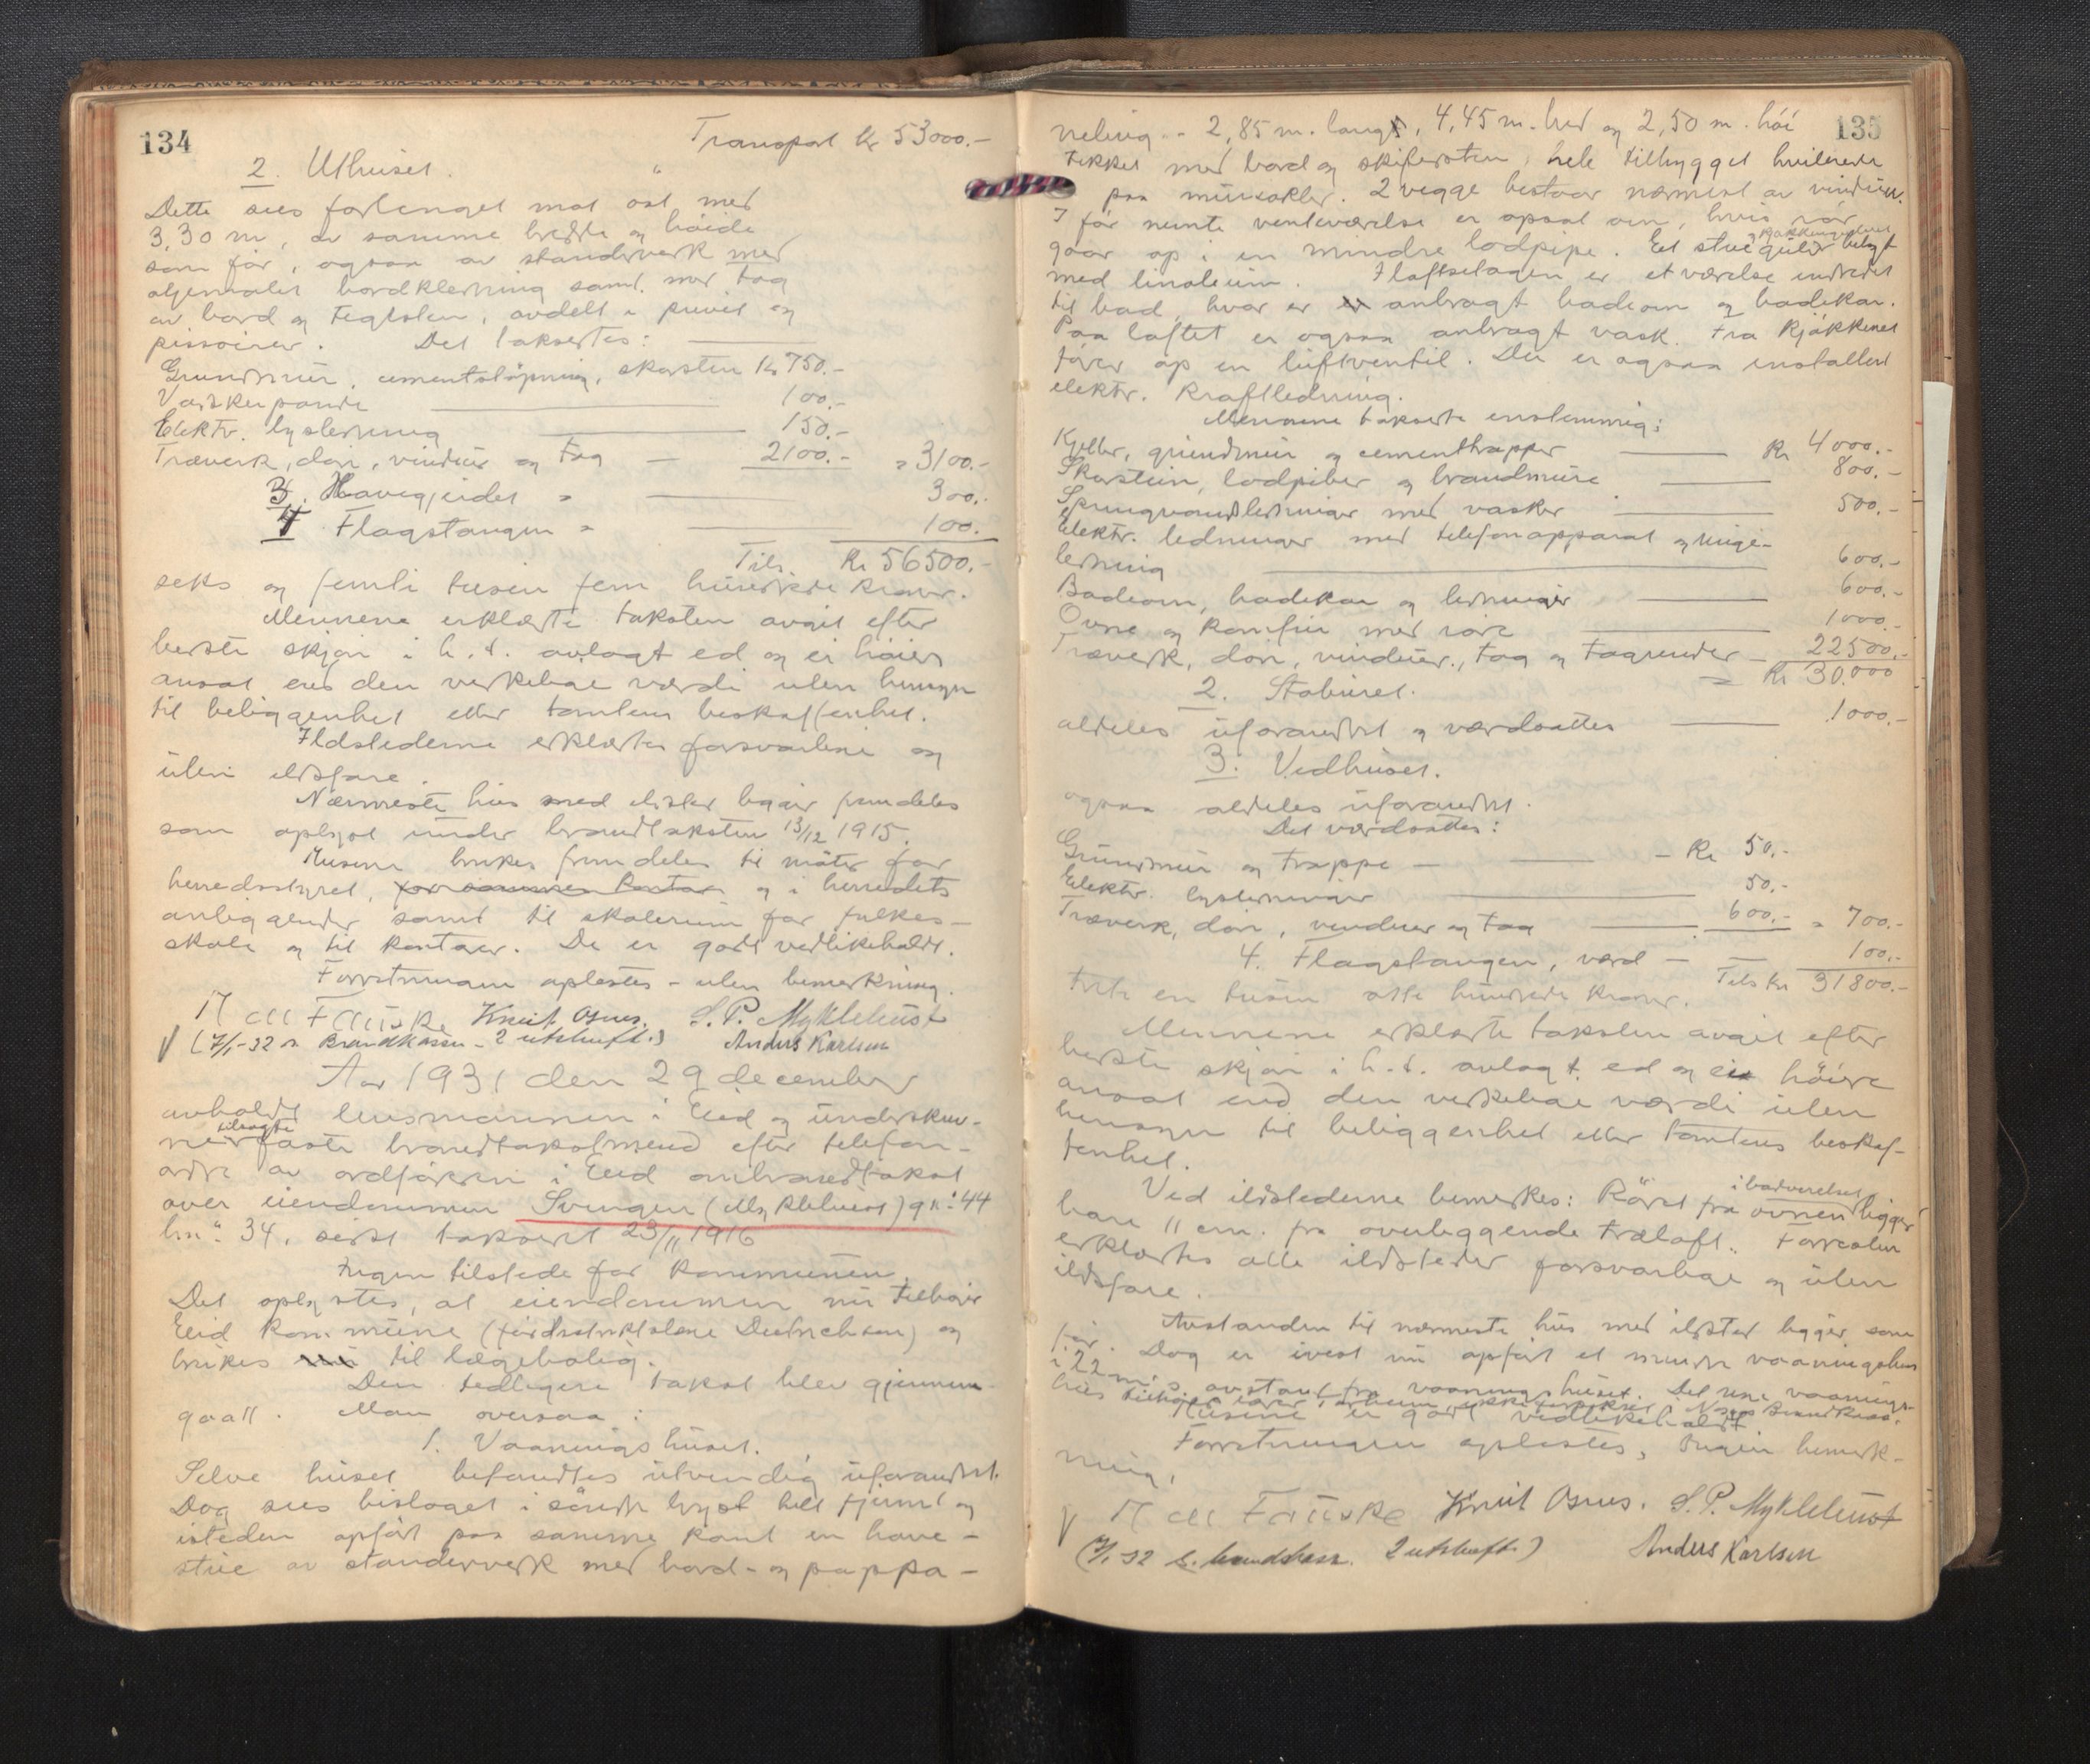 134
Transport kr 53000.-
2. Uthuset.
Dette sees forlenget mot øst med
3,30 m, av samme bredde og høide
som før, ogsaa av standerverk med
oljemalet bordklædning samt med tag
av bord og teglsten, avdelt i privet og
pissoirer. Det takseres:
Grundmur, cementstøpning, skorsten Kr 750.-
Vaskepande 100.-
Elektr. lysledning 150.-
Træverk, dør, vinduer og tag 2100.- = 3100.-
3. Havegjerdet = 300.-
4 Flagstangen = 100.
Tils. Kr 56500.-
seks og femti tusin fem hundrede kroner.
Mennene erklærte taksten avgit efter
bedste skjøn i h. t. avlagt ed og ei høiere
ansat end den verkelige værdi uten hensyn
til beliggenhet eller tomtens beskaffenhet.
Ildstederne erklærtes forsvarlige og
uten ildsfare.
Nærmeste hus med ildsted ligger fremdeles
som oplyst under brandtaksten 13/12 1915.
Husene brukes fremdeles til møter for
herredsstyret, og i herredets
anliggender samt til skolerum for folke-
skole og til kontoer. De er godt vedlikeholdt.
Forretningen oplestes - uten bemerkning.
M All Fauske Knut Osnes. S. P. Myklebust
V (7/1-32 s. Brandkassen - 2 utskrift.) Anders Karlsen
Aar 1931 den 29 december
avholdt lensmannen i Eid og underskrev-
ne tilsagte faste brandtakstmend efter telefon-
ordre av ordføreren i Eid ombrandtakst
over eiendommen Svingen (Myklebust) gn: 44
bn: 34, sidst taksert 23/11 1916
Ingen tilstede for kommunen.
Det oplystes, at eiendommen nu tilhører
Eid kommune (fordistriktslæge Diedrichsen) og
brukes til lægebolig.
Den tidligere takst blev gjennem-
gaatt. Man oversaa:
1. Vaaningshuset.
Selve huset befandtes utvendig uforandret.
Dog sees bislaget i søndre lyst helt fjernet og
isteden opført paa samme kant en have-
stue av standerverk med bord- og pappa-
135
neling - 2,85 m. langt, 4,45 m. bred og 2,50 m. høi
tekket med bord og skifersten, hele tilbygget hvilende
paa mursokler. 2 vegge bestaar nærmest av vinduer.
I før nemte venteværelse er opsat ovn, hvis rør
gaar op i en mindre lodpipe. Et stuegulv og kjøkkengulvet belagt
med linoleum. I loftsetagen er et værelse indredet
til bad, hvor er anbragt badeovn og badekar.
Paa loftet er ogsaa anbragt vask. Fra kjøkkenet
fører op en luftventil. Der er ogsaa installert
elektr. kraftledning.
Mennene takserte enstemmig:
Kjeller, grundmur og cementtrapper Kr 4000.-
Skorstein, lodpiber og brandmure 800.-
Springvandsledninger med vasker 500.-
Elektr. ledninger med telefonapparat og ringe-
ledning 600.-
Badeovn, badekar og ledninger 600.-
Ovne og komfur med røir 1000.-
Træverk, dør, vinduer, tag og tagrender 22500.-
= Kr 30.000
2. Staburet.
aldeles uforandret og værdsattes 1000.-
3. Vedhuset.
ogsaa aldeles uforandret.
Det værdsattes:
Grundmur og trappe - Kr 50.-
Elektr. lysledninger 50.-
Træverk, dør, vinduer og tag 600.- = 700.-
4. Flagstangen, værd 100.-
Tils kr 31800.-
Trette en tusin otte hundrede kroner.
Mennene erklærte taksten avgit efter
bedste skjøn i h. t. avlagt ed og ei høiere
ansat end den verkelige værdi uten
hensyn til beliggenhet eller tomtens beskaf-
fenhet.
Ved ildstederne bemerkes: Røret fra ovnen i badeværelset ligger
bare 11 cm. fra overliggende træloft. Forresten
erklærtes alle ildsteder forsvarlige og uten
ildsfare.
Avstanden til nærmeste hus med ildsted ligger som
før. Dog er ivest nu opført et mindre vaaningshus
i 22 m's avstand fra vaaningshuset. Det nye vaanings-
hus ikke forsikret i Norges Brandkasse.
Husene er godt vedlikeholdt
Forretningen oplestes, Ingen bemerk-
ning.
M All Fauske Knut Osnes. S. P. Myklebust
V (7/1 32 s. brandkass. 2 utskrift.) Anders Karlsen